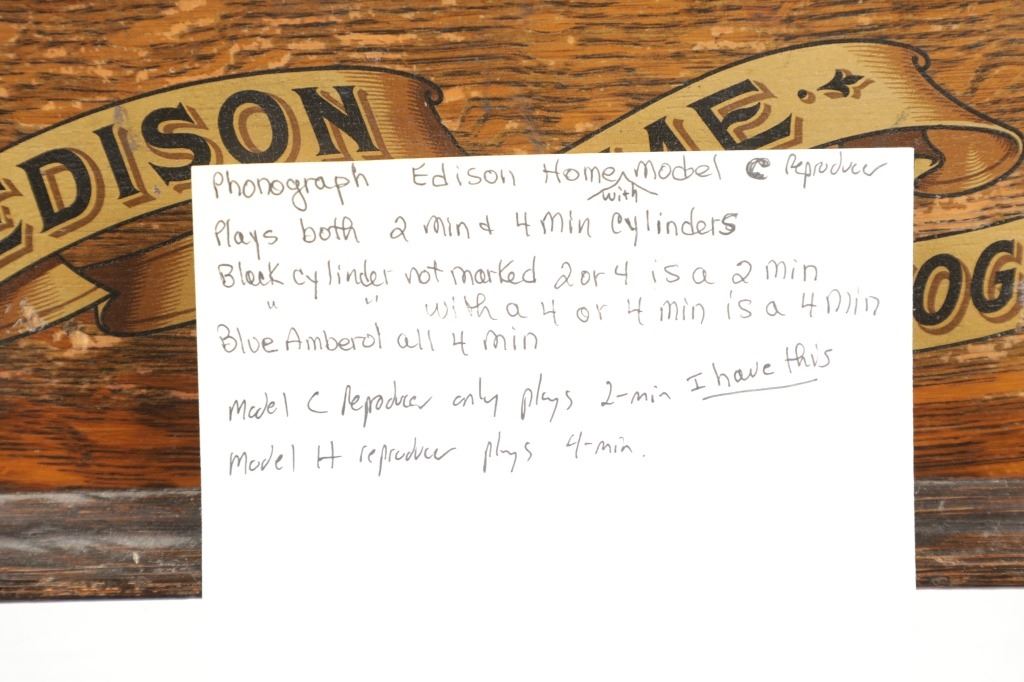 EDISON
ME
OG
Phonograph Edison Home with Model C Reproducer
Plays both 2 min & 4 Min Cylinders
Black cylinder not marked 2 or 4 is a 2 min
" " with a 4 or 4 min is a 4 Min
Blue Amberol all 4 min
Model C Reproducer only plays 2-min I have this
Model H reproducer plays 4-min.